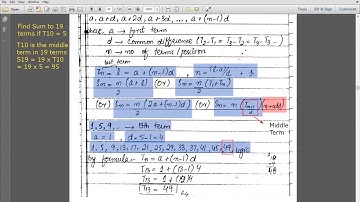 Find Sum to 19
terms if T10 = 5
T10 is the middle
term in 19 terms
S19 = 19 x T10
= 19 x 5 = 95
a, a+d, a+2d, a+3d, ..., a+(n-1)d
where a → first term
d → common difference (T2-T1 = T3-T2 = T4-T3 ..
n → no of terms/position
last term
Tn = l = a+(n-1)d , n = (l-a)/d + 1
Sn = n(
)/2 (or) Sn = n(
)/2
(or) Sn = n(2a+(n-1)d)/2 (or) Sn = n
(n=odd)
Middle
Term
1, 5, 9, .. → 13th term
a = 1, d = 5-1 = 4
1, 5, 9, 13, 17, 21, 25, 29, 33, 37, 41, 45, 49 logic
By formula - Tn = a+(n-1)d
T13 = 1+(13-1)4
T13 = 1+(12)4
T13 = 49